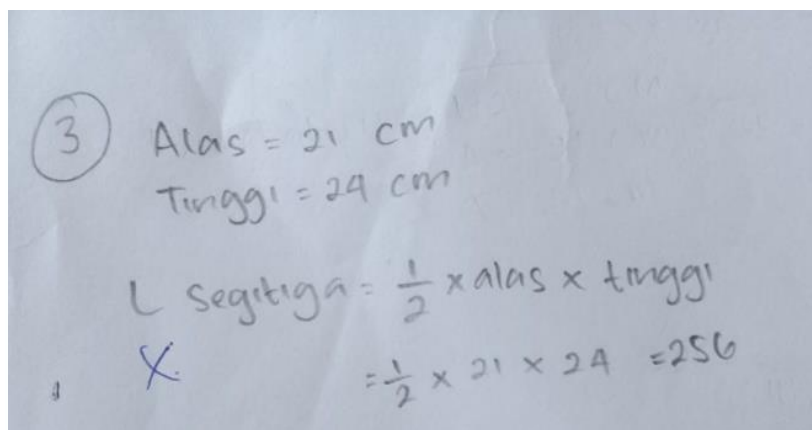 3 Alas = 21 cm
Tinggi = 24 cm
L segitiga = 1/2 x alas x tinggi
X. = 1/2 x 21 x 24 = 256